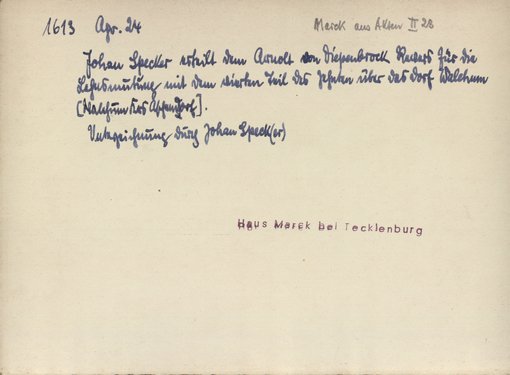 1613 Apr. 24 Marck aus Akten II 28
Johan Specker erteilt dem Arnolt von Diepenbrock Revers für die
Lehnsmutung mit dem vierten Teil des Zehnten über das Dorf Walchum
[Walchum Krs Aschendorf].
Unterzeichnung durch Johan Speck(er)
Haus Marck bei Tecklenburg